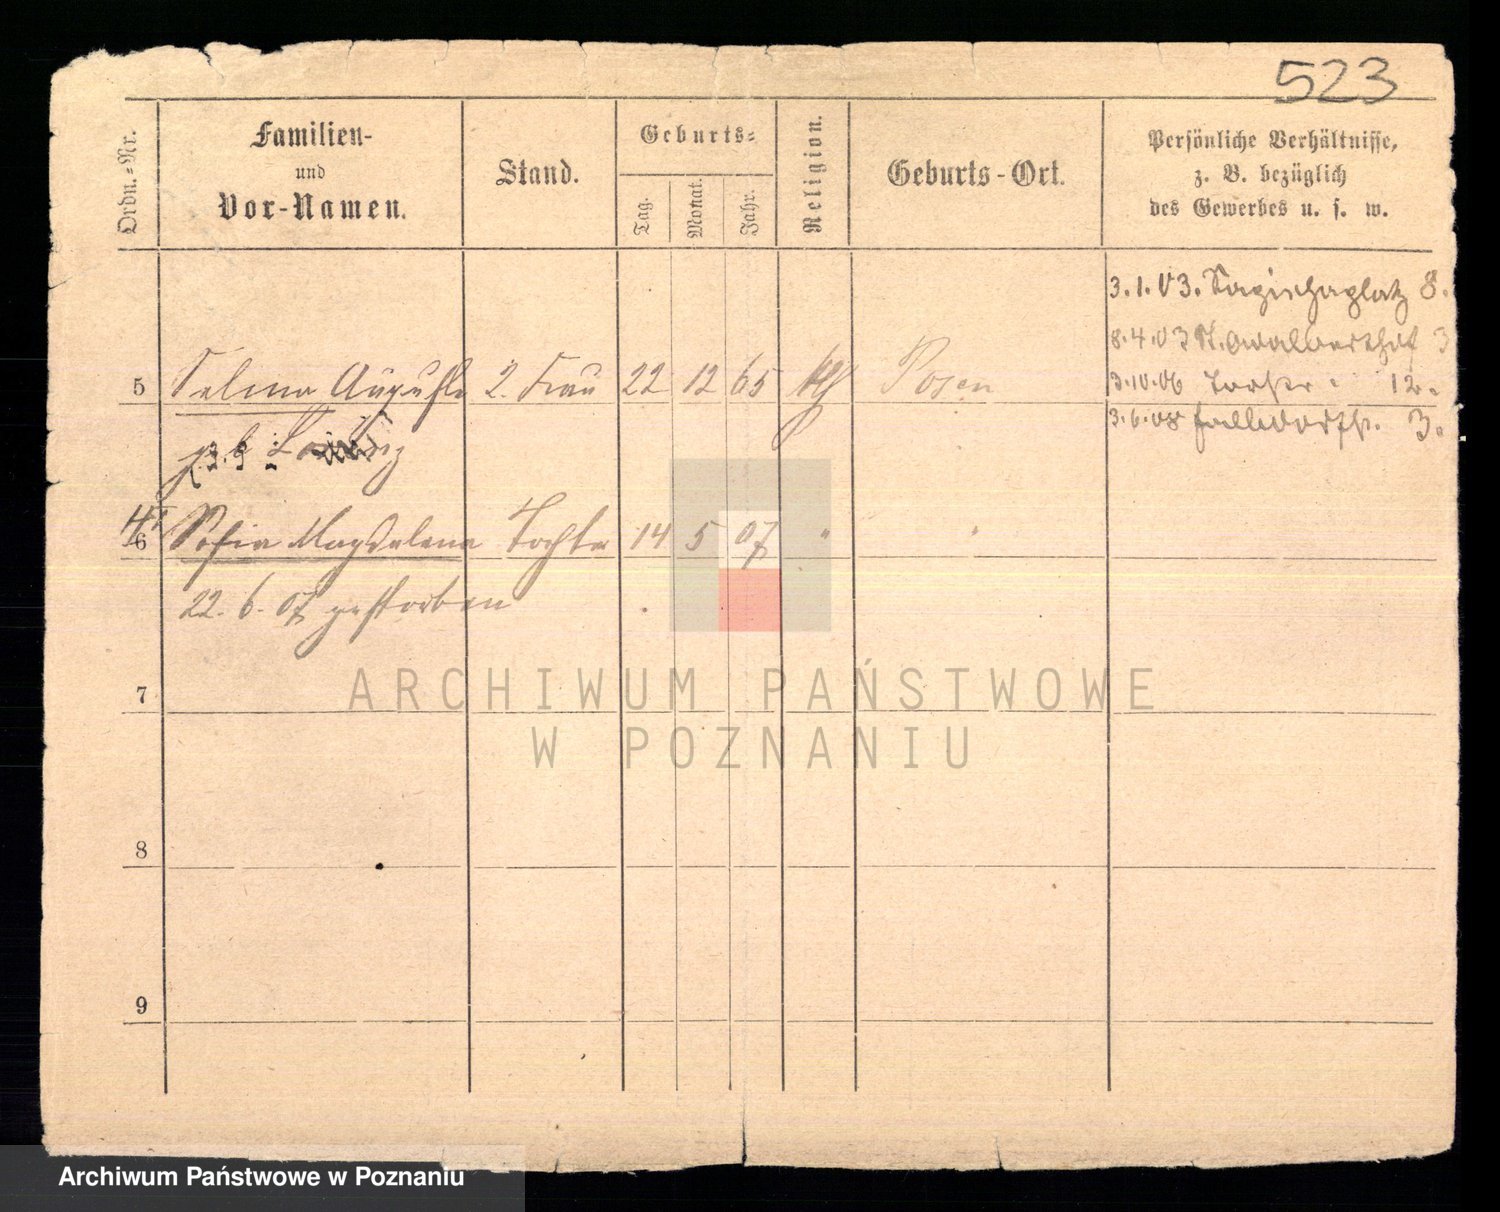 523
Ordn.-Nr.
Familien-
und
Vor-Namen.
Stand.
Geburts-
Tag.
Monat.
Jahr.
Religion.
Geburts-Ort.
Persönliche Verhältnisse,
z. B. bezüglich
des Gewerbes u. s. w.
3.1.03. Sapiehaplatz 8.
8.4.03 St. Adalbertstr 3
5 Selma Auguste 2. Frau 22 12 65 Posen
3.10.06 12.
3.6.08 3.
geb.
6 Sofia Magdalena Tochter 14 5 07 " "
22.6.07 gestorben
7
8
9
ARCHIWUM PAŃSTWOWE
W POZNANIU
Archiwum Państwowe w Poznaniu